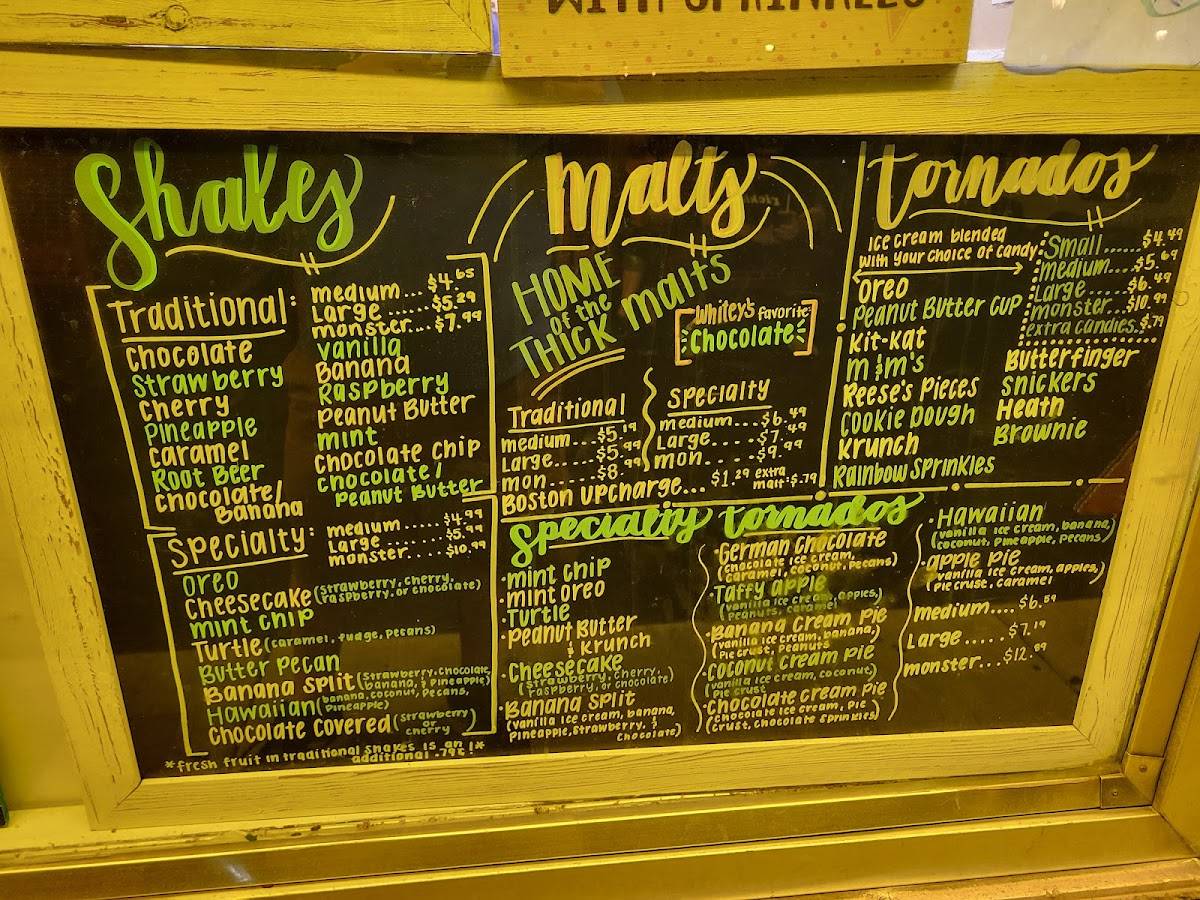 WITH SPRINKLES
Shakes
Traditional:
medium... $4.65
Large..... $5.29
monster... $7.99
chocolate
Strawberry
cherry
Pineapple
caramel
Root Beer
chocolate/
Banana
vanilla
Banana
Raspberry
Peanut Butter
mint
chocolate chip
chocolate/
Peanut Butter
Specialty:
medium...... $4.99
Large....... $5.99
monster.... $10.99
oreo
cheesecake (strawberry, cherry,
raspberry, or chocolate)
mint chip
Turtle (caramel, fudge, pecans)
Butter Pecan
Banana Split (strawberry, chocolate,
banana, & pineapple)
Hawaiian (banana, coconut, pecans,
pineapple)
chocolate covered (strawberry
or
cherry)
*fresh fruit in traditional shakes is an
additional .79¢!*
malts
HOME
of the
THICK malts
Whitey's favorite:
chocolate
Traditional
medium... $5.19
Large...... $5.99
mon....... $8.99
Specialty
medium.... $6.49
Large..... $7.49
mon..... $9.99
Boston upcharge... $1.29 extra
malt: $.79
tornados
ice cream blended
with your choice of candy
Small...... $4.49
medium.... $5.69
Large...... $6.49
monster... $10.99
extra candies. $.79
oreo
Peanut Butter cup
Kit-Kat
m & m's
Reese's Pieces
cookie Dough
Krunch
Rainbow Sprinkles
Butterfinger
snickers
Heath
Brownie
Specialty tornados
·mint chip
·mint oreo
·Turtle
·Peanut Butter
& Krunch
·cheesecake
(strawberry, cherry,
raspberry, or chocolate)
·Banana Split
(vanilla ice cream, banana,
Pineapple, strawberry, &
chocolate)
·German chocolate
(chocolate ice cream,
caramel, coconut, pecans)
·Taffy apple
(vanilla ice cream, apples,
Peanuts, caramel)
·Banana cream pie
(vanilla ice cream, banana,
Pie crust, peanuts
·coconut cream pie
(vanilla ice cream, coconut,
Pie crust
·chocolate cream pie
(chocolate ice cream, pie
crust, chocolate sprinkles)
·Hawaiian
(vanilla ice cream, banana,
coconut, pineapple, pecans)
·apple pie
(vanilla ice cream, apples,
Pie crust, caramel
medium.... $6.59
Large..... $7.19
monster... $12.09